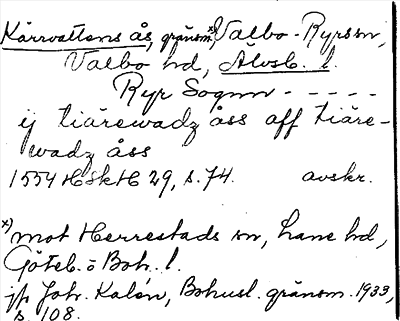 Kärrvattens ås, gränsm.x) Valbo-Ryrs sn,
Valbo hd, Älvsb. l.
Ryr Sognn - - - - -
ij tiärewadz åss aff tiäre-
wadz åss
1554 HSkH 29, s. 74. avskr.
x) mot Herrestads sn, Lane hd,
Göteb. o Boh. l.
jfr Joh. Kalén, Bohusl. gränsm. 1933,
s. 108.